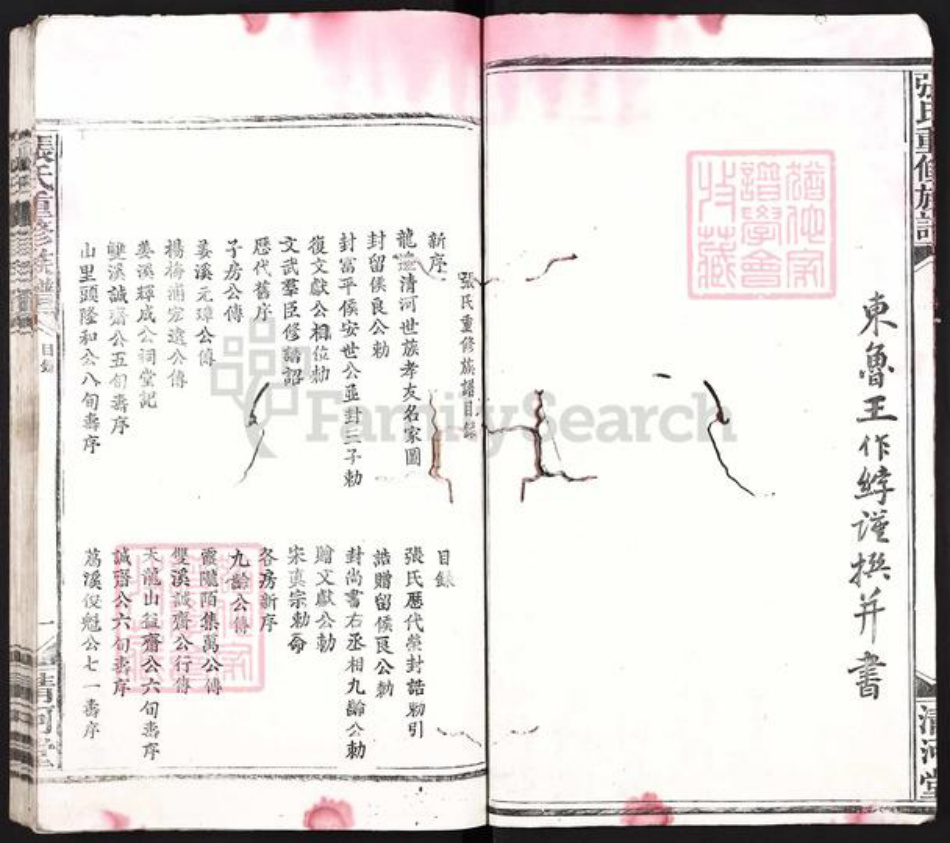 張氏重修族譜
清河堂
東魯王作綍謹撰并書
猶他家譜學會收藏
張氏重修族譜目錄
新序
目錄
龍邉清河世族孝友名家圖
張氏歷代榮封誥勅引
封留侯良公勅
誥贈留侯良公勅
封富平侯安世公並封三子勅
封尚書右丞相九齡公勅
復文獻公相位勅
贈文獻公勅
文武羣臣修譜詔
宋真宗勅命
歷代舊序
各房新序
子房公傳
九齡公傳
姜溪元璋公傳
霞隴陌集萬公傳
楊梅浦宏遠公傳
雙溪誠齋公行傳
姜溪輝成公祠堂記
天龍山益齋公六旬壽序
雙溪誠齋公五旬壽序
誠齋公六旬壽序
山里頭隆和公八旬壽序
葛溪俊魁公七一壽序
張氏重修族譜
目錄
一
清河堂
FamilySearch